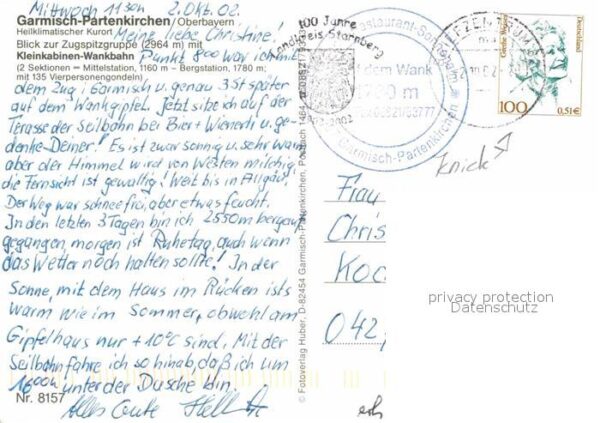 Mittwoch 11³⁰h 2. Okt. 02
Garmisch-Partenkirchen / Oberbayern
Heilklimatischer Kurort
Meine liebe Christine!
Blick zur Zugspitzgruppe (2964 m) mit
Kleinkabinen-Wankbahn
Punkt 8⁰⁰ war ich mit
(2 Sektionen = Mittelstation, 1160 m – Bergstation, 1780 m;
mit 135 Vierpersonengondeln)
dem Zug i. Garmisch u. genau 3 St später
auf dem Wankgipfel. Jetzt sitze ich auf der
Terasse der Seilbahn bei Bier + Wienerli u. ge-
denke Deiner! Es ist zwar sonnig u. sehr warm
aber der Himmel wird von Westen milchig,
die Fernsicht ist gewaltig! Weit bis in Allgäu.
Der Weg war schneefrei, aber etwas feucht.
In den letzten 3 Tagen bin ich 2550 m bergauf
gegangen, morgen ist Ruhetag, auch wenn
das Wetter noch halten sollte! In der
Sonne, mit dem Haus im Rücken ists
warm wie im Sommer, obwohl am
Gipfelhaus nur +10°C sind. Mit der
Seilbahn fahre ich so hinab daß ich um
16⁰⁰h unter der Dusche bin.
Nr. 8157
Alles Gute
© Fotoverlag Huber, D-82454 Garmisch-Partenkirchen, Postfach 1464
100 Jahre
Landkreis Starnberg
1902-2002
Restaurant-Sonnenalm
auf dem Wank
Garmisch-Partenkirchen
Deutschland
100
0,51 €
Knick
Frau
Chris
Koc
042
privacy protection
Datenschutz